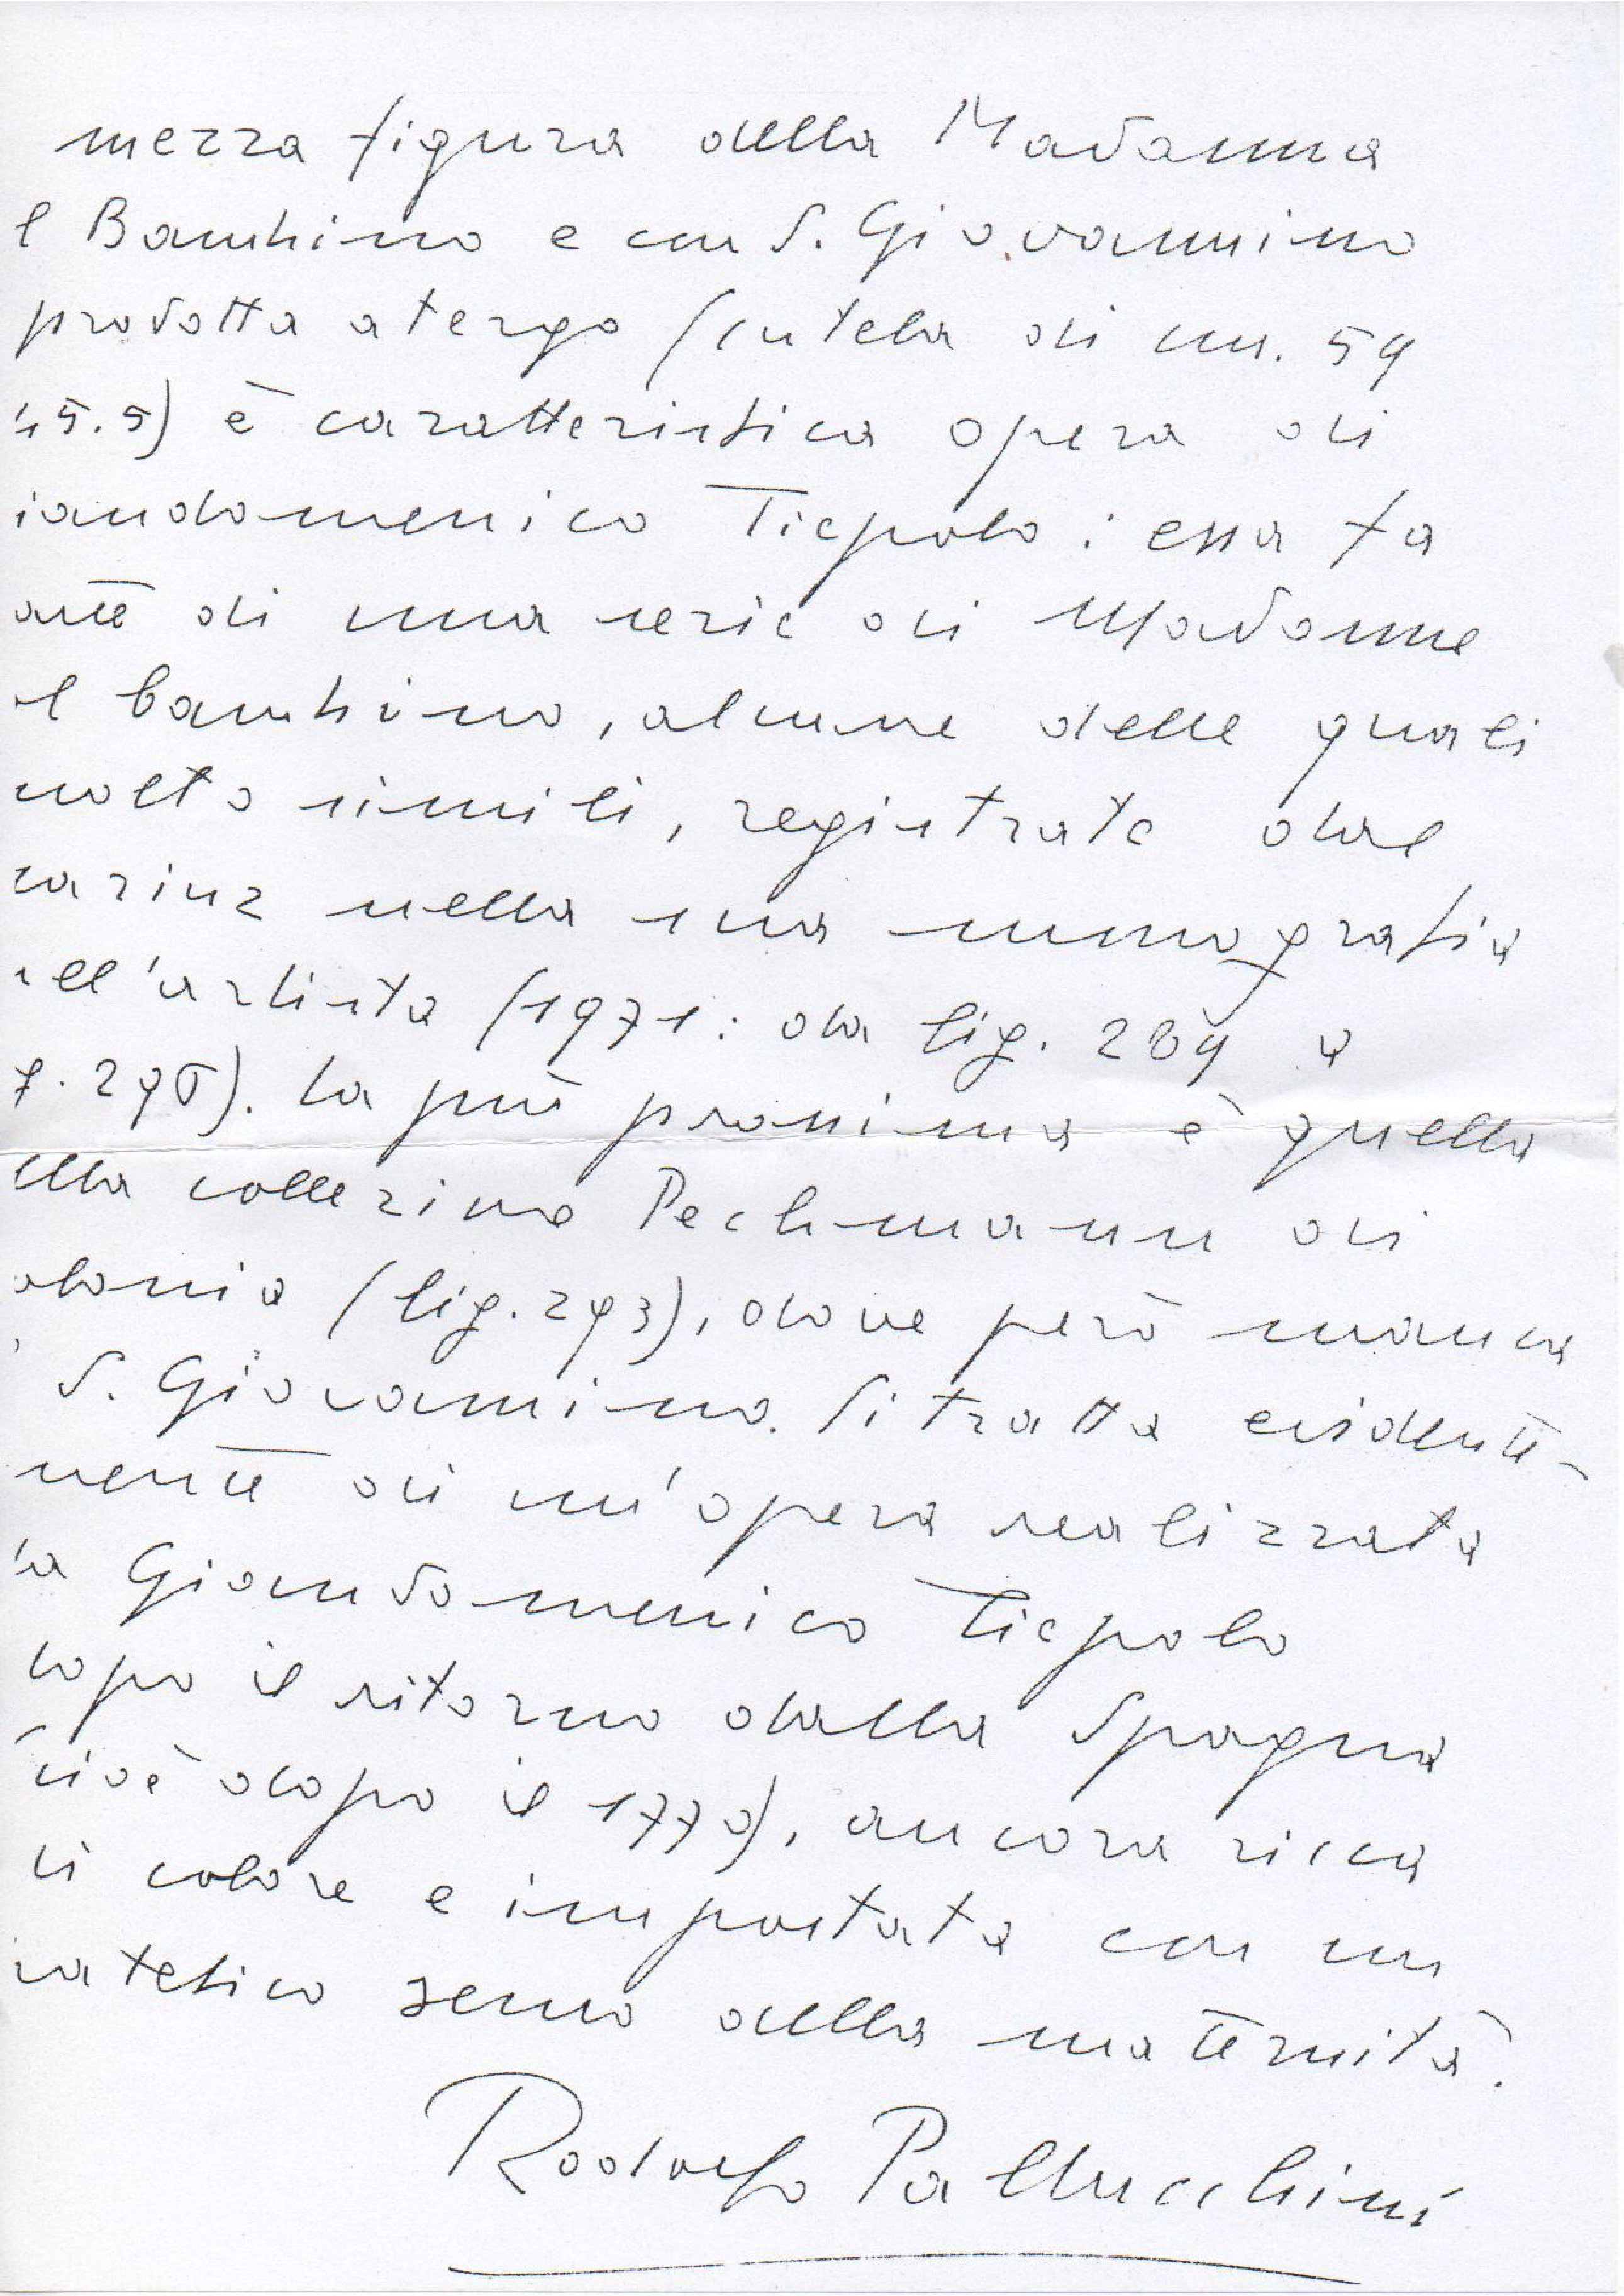 mezza figura della Madonna
l Bambino e con S. Giovannino
prodotta a tergo (in tela di cm. 59
45.5) è caratteristica opera di
iandomenico Tiepolo: essa fa
arte di una serie di Madonne
l bambino, alcune delle quali
molto simili, registrate dal
cariuz nella sua monografia
ell'artista (1971: da fig. 289 a
g. 295). La più prossima è quella
ella collezione Pechmann di
olonia (fig. 293), dove però manca
S. Giovannino. Si tratta evidente-
mente di un'opera realizzata
da Giandomenico Tiepolo
dopo il ritorno dalla Spagna
(cioè dopo il 1770), ancora ricca
di colore e impostata con un
patetico senso della maternità.
Rodolfo Pallucchini